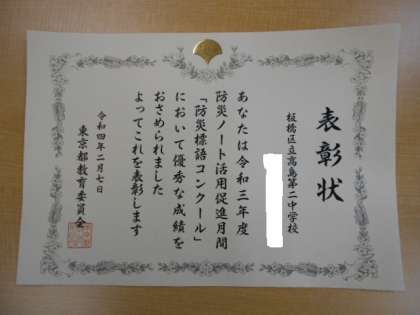 表彰状
板橋区立高島第二中学校
あなたは令和三年度
防災ノート活用促進月間
「防災標語コンクール」
において優秀な成績を
おさめられました
よってこれを表彰します
令和四年二月七日
東京都教育委員会